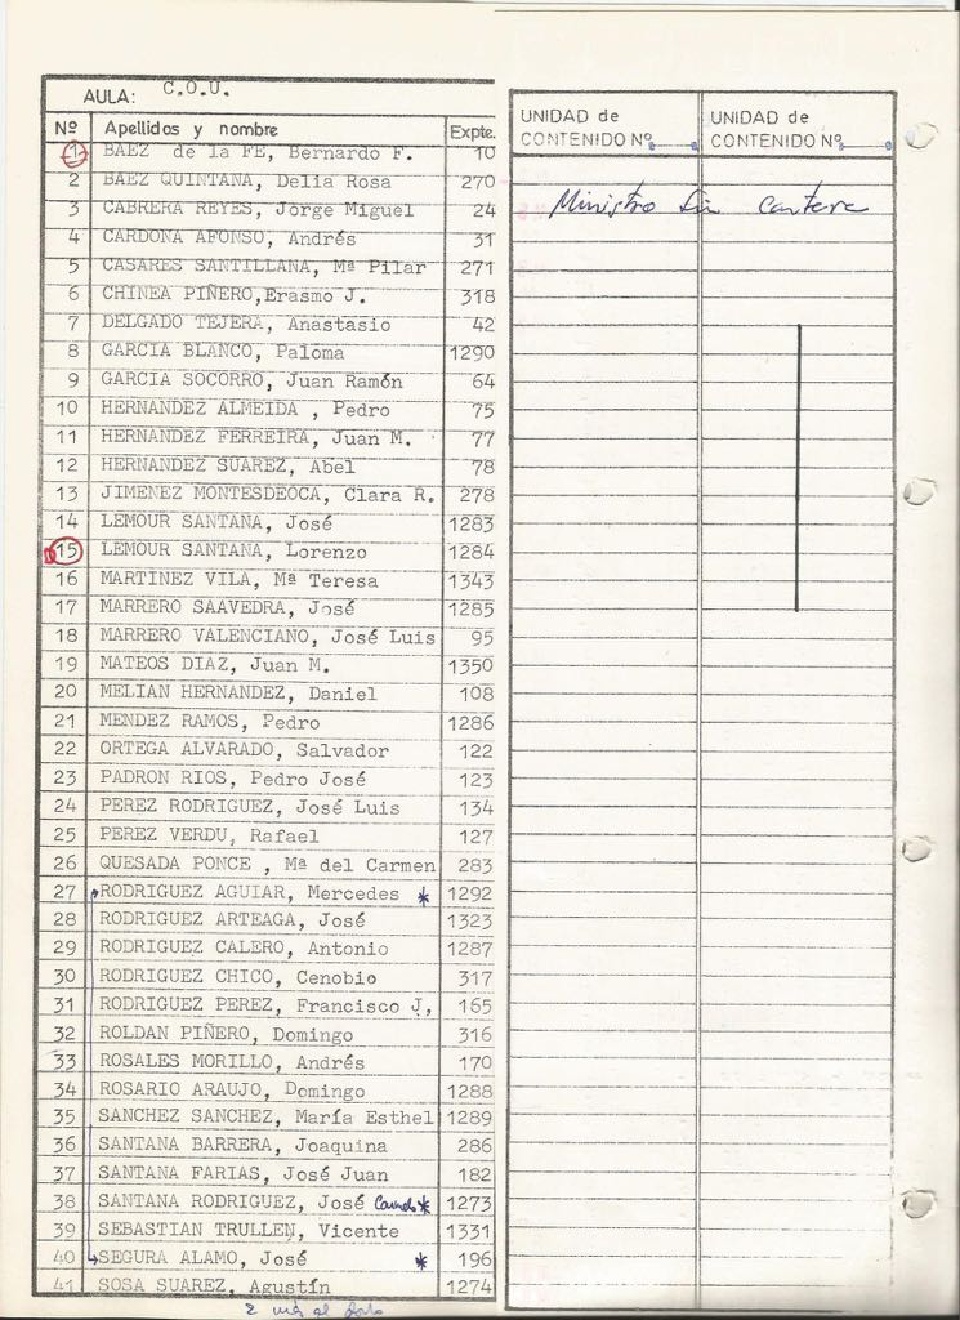 AULA: C.O.U.
Nº Apellidos y nombre Expte.
1 BAEZ de la FE, Bernardo F. 10
2 BAEZ QUINTANA, Delia Rosa 270
3 CABRERA REYES, Jorge Miguel 24
4 CARDONA AFONSO, Andrés 31
5 CASARES SANTILLANA, Mª Pilar 271
6 CHINEA PIÑERO,Erasmo J. 318
7 DELGADO TEJERA, Anastasio 42
8 GARCIA BLANCO, Paloma 1290
9 GARCIA SOCORRO, Juan Ramón 64
10 HERNANDEZ ALMEIDA , Pedro 75
11 HERNANDEZ FERREIRA, Juan M. 77
12 HERNANDEZ SUAREZ, Abel 78
13 JIMENEZ MONTESDEOCA, Clara R. 278
14 LEMOUR SANTANA, José 1283
15 LEMOUR SANTANA, Lorenzo 1284
16 MARTINEZ VILA, Mª Teresa 1343
17 MARRERO SAAVEDRA, José 1285
18 MARRERO VALENCIANO, José Luis 95
19 MATEOS DIAZ, Juan M. 1350
20 MELIAN HERNANDEZ, Daniel 108
21 MENDEZ RAMOS, Pedro 1286
22 ORTEGA ALVARADO, Salvador 122
23 PADRON RIOS, Pedro José 123
24 PEREZ RODRIGUEZ, José Luis 134
25 PEREZ VERDU, Rafael 127
26 QUESADA PONCE , Mª del Carmen 283
27 RODRIGUEZ AGUIAR, Mercedes * 1292
28 RODRIGUEZ ARTEAGA, José 1323
29 RODRIGUEZ CALERO, Antonio 1287
30 RODRIGUEZ CHICO, Cenobio 317
31 RODRIGUEZ PEREZ, Francisco J, 165
32 ROLDAN PIÑERO, Domingo 316
33 ROSALES MORILLO, Andrés 170
34 ROSARIO ARAUJO, Domingo 1288
35 SANCHEZ SANCHEZ, María Esthel 1289
36 SANTANA BARRERA, Joaquina 286
37 SANTANA FARIAS, José Juan 182
38 SANTANA RODRIGUEZ, José * 1273
39 SEBASTIAN TRULLEN, Vicente 1331
40 SEGURA ALAMO, José * 196
41 SOSA SUAREZ. Agustín 1274
UNIDAD de CONTENIDO Nº
UNIDAD de CONTENIDO Nº
Ministro